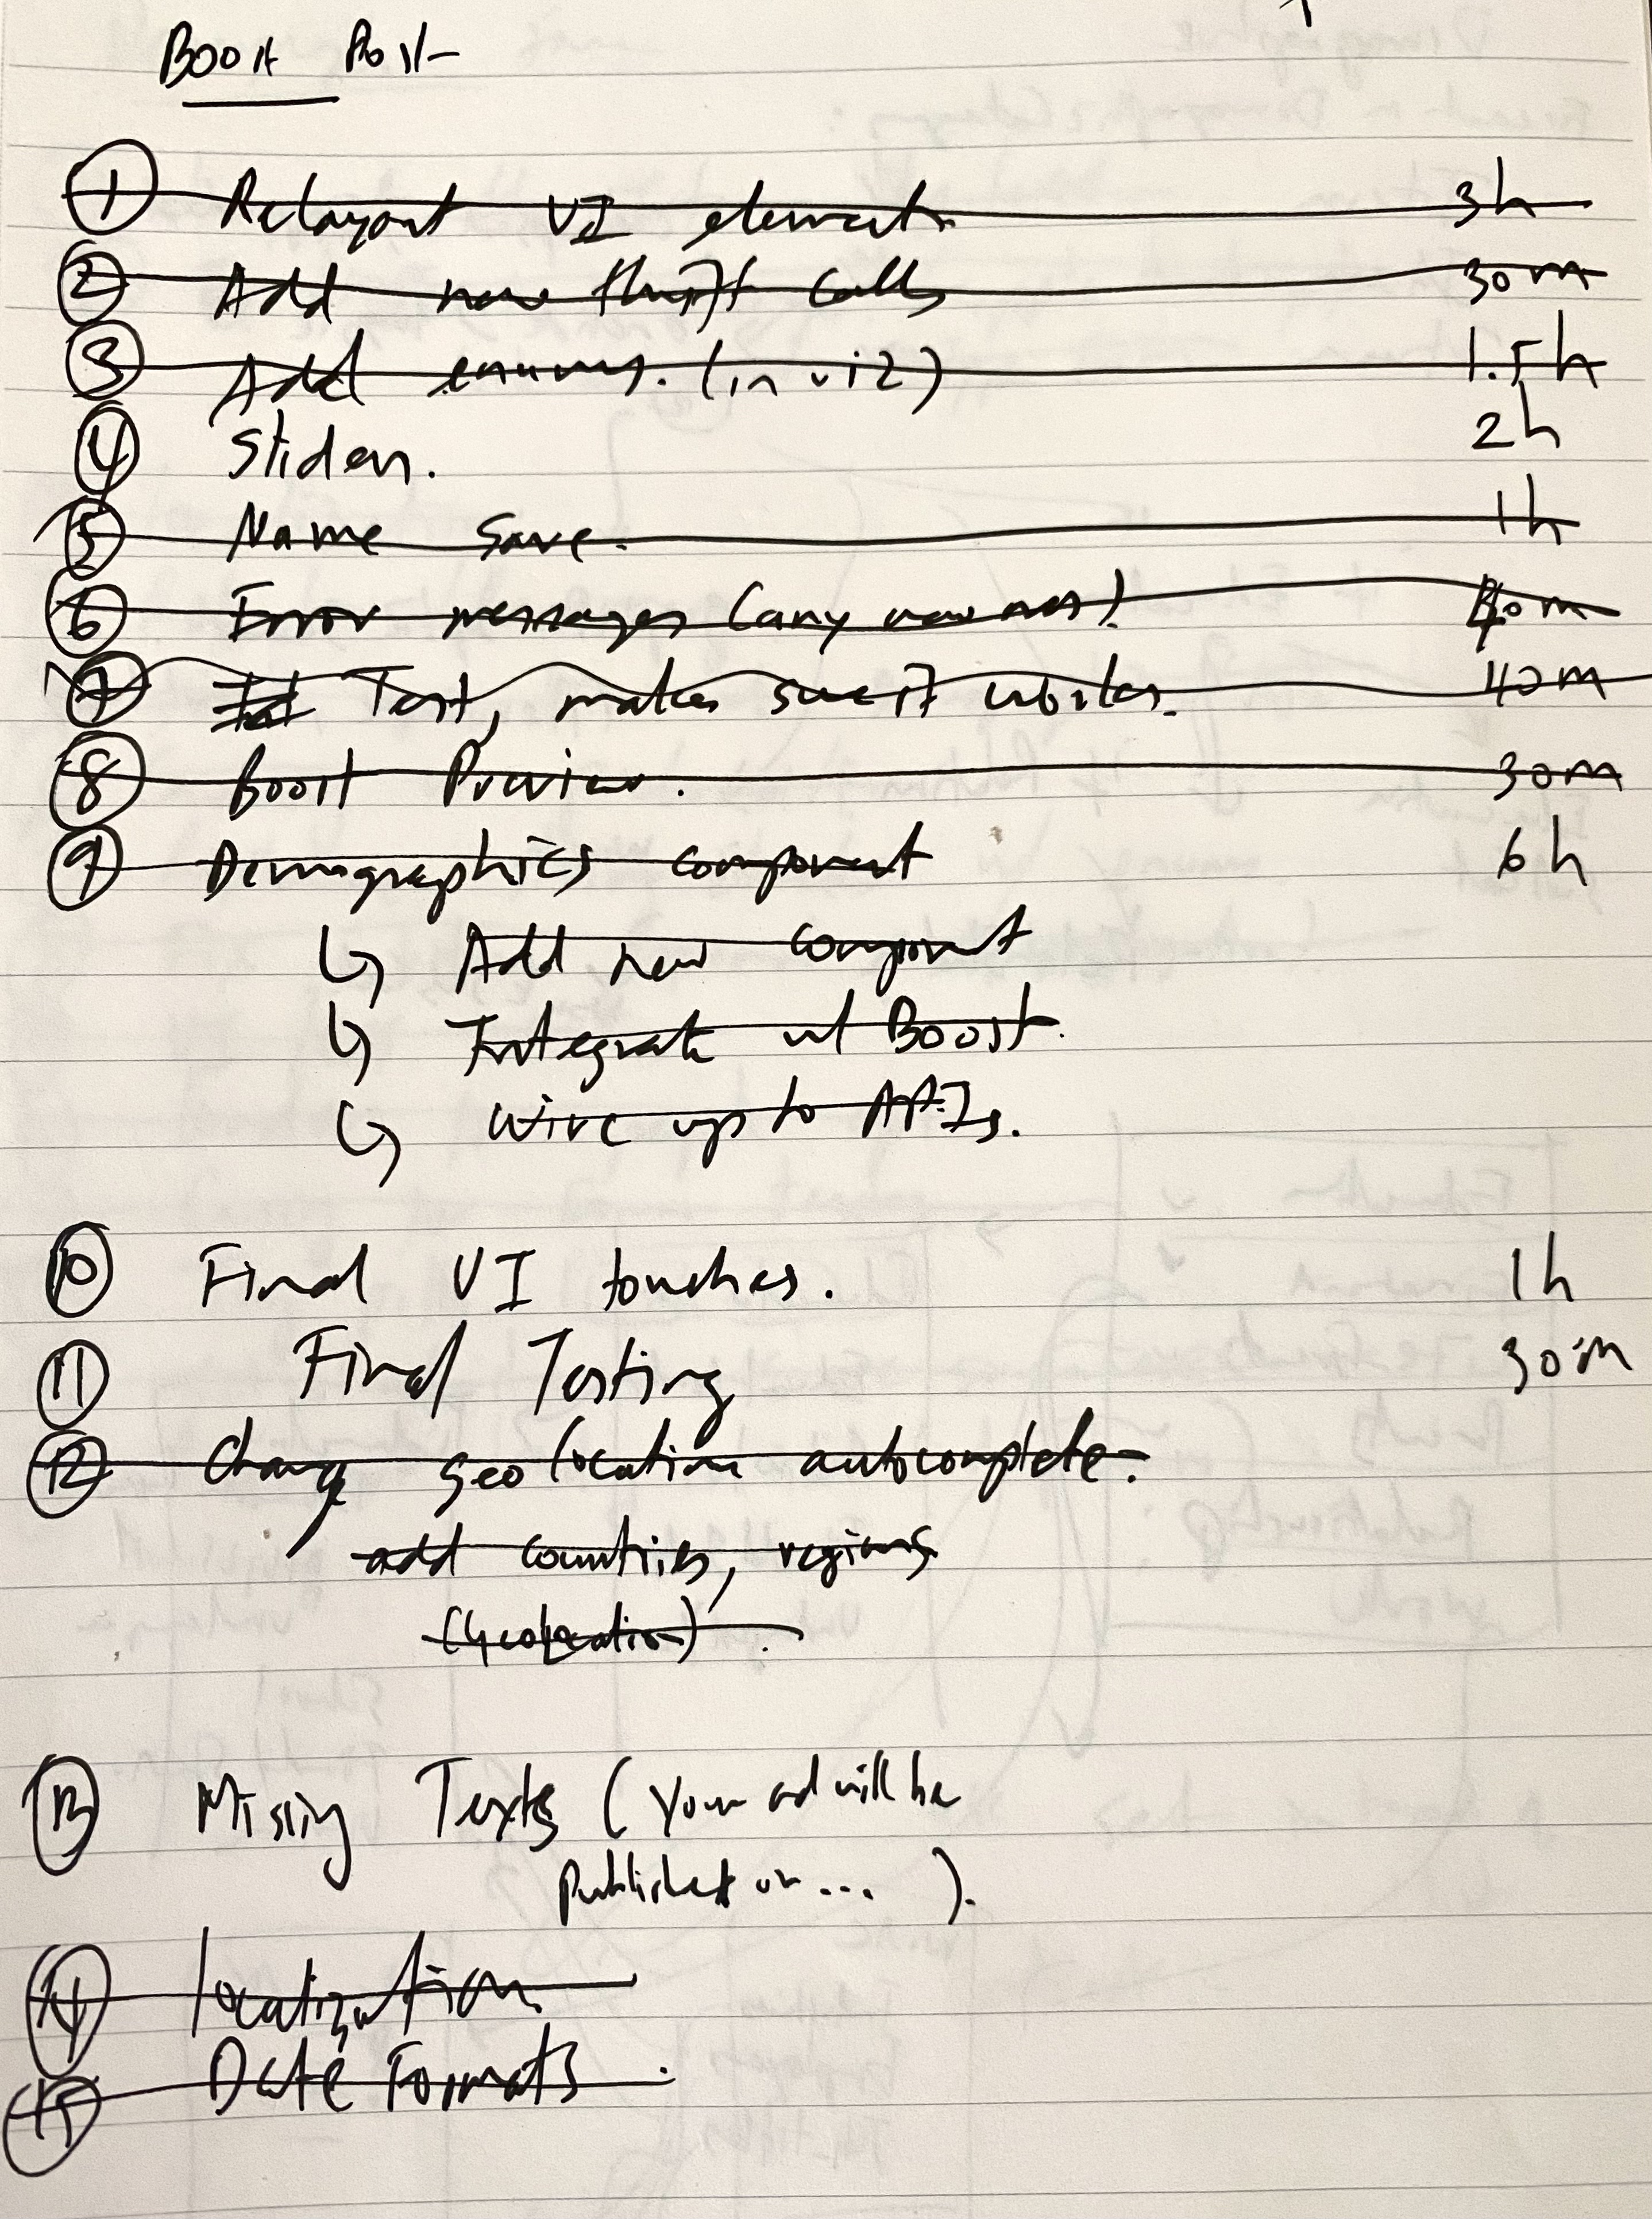 Boost Post
1 Relayout UI elements 3h
2 Add new thrift calls 30m
3 Add enums. (in viz) 1.5h
4 2h
5 Name Save. 1h
6 Error messages (any new ones) 40m
7 Test, makes sure it works. 40m
8 Boost Preview. 30m
9 Demographics component 6h
↳ Add new component
↳ Integrate w/ Boost.
↳ Wire up to APIs.
10 Final UI touches. 1h
11 Final Testing 30m
12 Change geolocation autocomplete.
add countries, regions
(Geolocation).
13 Missing Texts (Your ad will be
published on ... ).
14 localization
15 Date Formats.